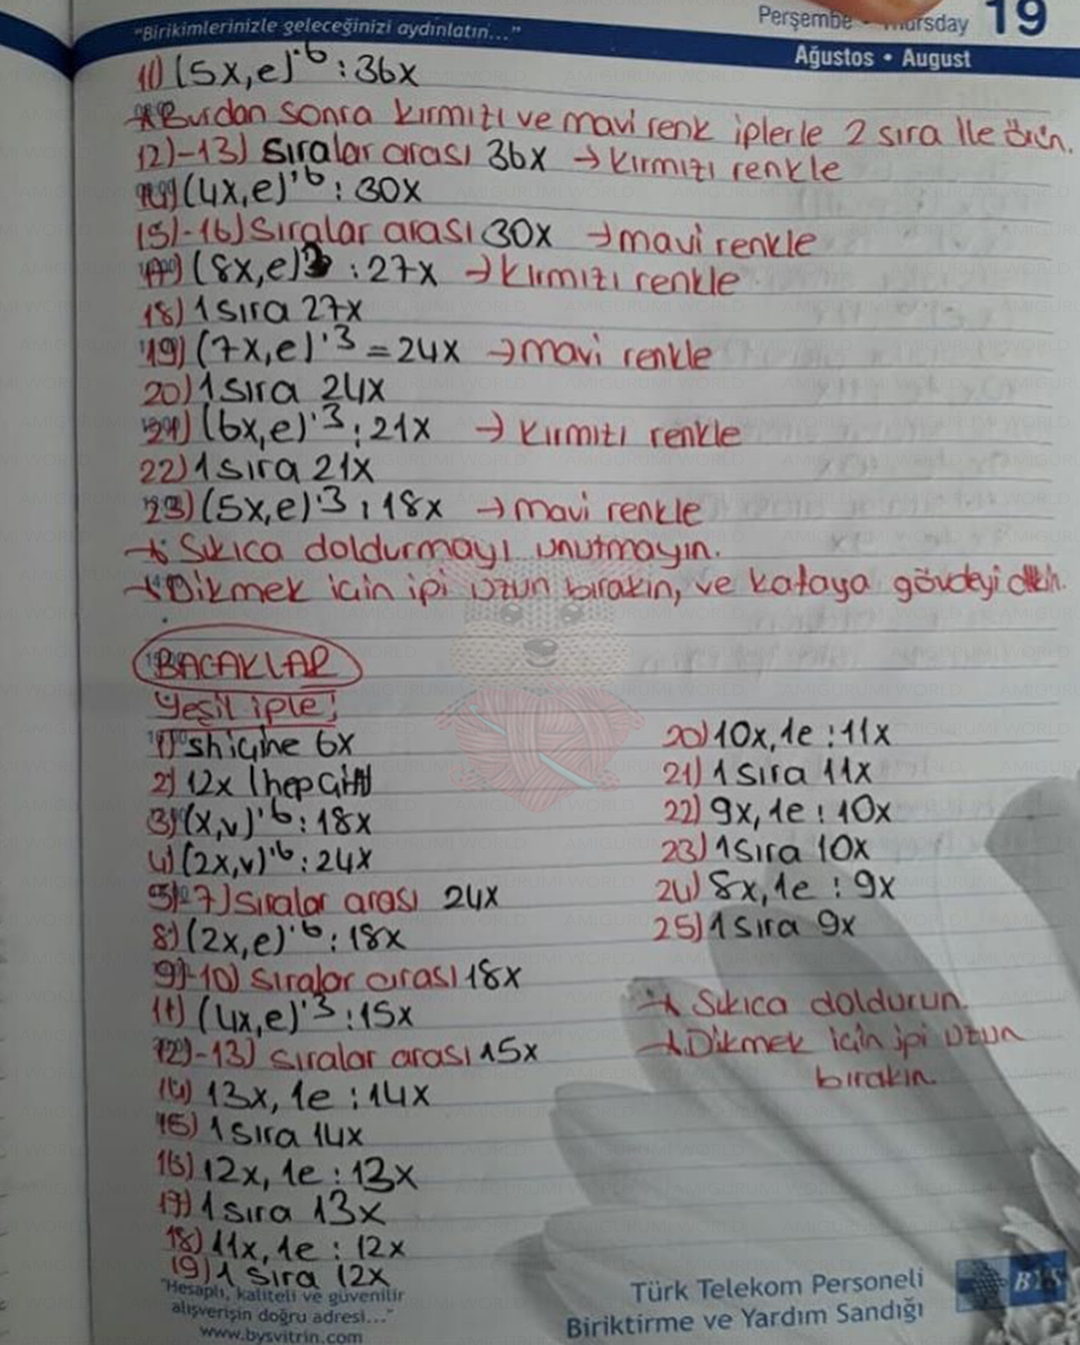 "Birikimlerinizle geleceğinizi aydınlatın..."
Perşembe - Thursday 19
Ağustos • August
11) (5x,e)'6 : 36x
* Burdan sonra kırmızı ve mavi renk iplerle 2 sıra ile örün.
12)-13) Sıralar arası 36x → kırmızı renkle
14) (4x,e)'6 : 30x
15)-16) Sıralar arası 30x → mavi renkle
17) (8x,e)'3 : 27x → kırmızı renkle
18) 1 sıra 27x
19) (7x,e)'3 = 24x → mavi renkle
20) 1 sıra 24x
21) (6x,e)'3 : 21x → kırmızı renkle
22) 1 sıra 21x
23) (5x,e)'3 : 18x → mavi renkle
* Sıkıca doldurmayı unutmayın.
* Dikmek için ipi uzun bırakın, ve kafaya gövdeyi dikin.
BACAKLAR
Yeşil iple;
1) sh içine 6x
2) 12x (hep çift)
3) (x,v)'6 : 18x
4) (2x,v)'6 : 24x
5)-7) Sıralar arası 24x
8) (2x,e)'6 : 18x
9)-10) Sıralar arası 18x
11) (4x,e)'3 : 15x
12)-13) sıralar arası 15x
14) 13x, 1e : 14x
15) 1 sıra 14x
16) 12x, 1e : 13x
17) 1 sıra 13x
18) 11x, 1e : 12x
19) 1 sıra 12x
20) 10x, 1e : 11x
21) 1 sıra 11x
22) 9x, 1e : 10x
23) 1 sıra 10x
24) 8x, 1e : 9x
25) 1 sıra 9x
* Sıkıca doldurun.
* Dikmek için ipi uzun
bırakın.
"Hesaplı, kaliteli ve güvenilir
alışverişin doğru adresi..."
www.bysvitrin.com
Türk Telekom Personeli
Biriktirme ve Yardım Sandığı
BYS
AMIGURUMI WORLD